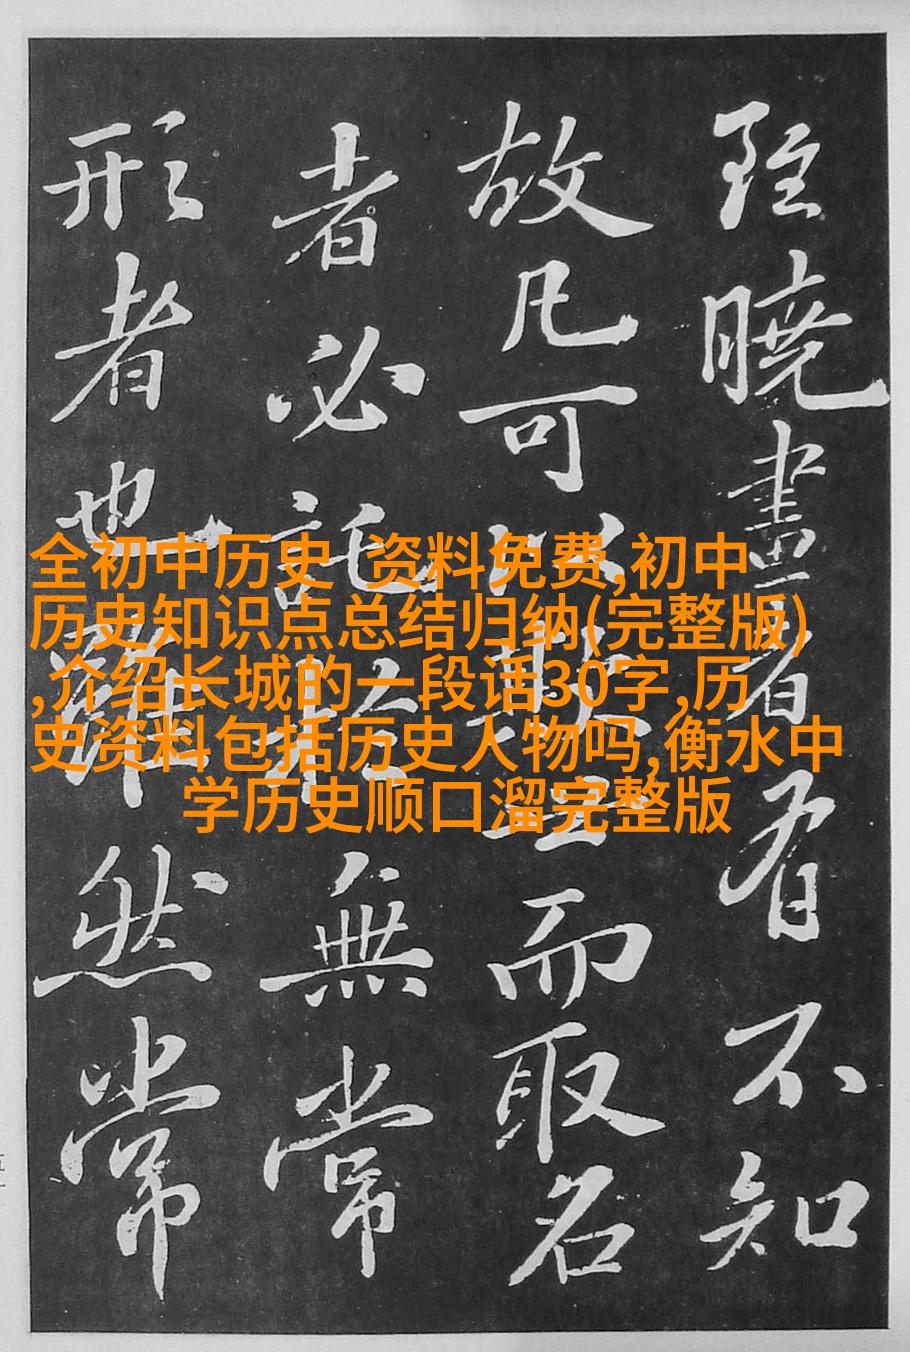 雖曉畫者有不知
故凡可以欺世而取名
者必託於無常
形者也雖然常
全初中历史 资料免费,初中
历史知识点总结归纳(完整版)
,介绍长城的一段话30字,历
史资料包括历史人物吗,衡水中
学历史顺口溜完整版